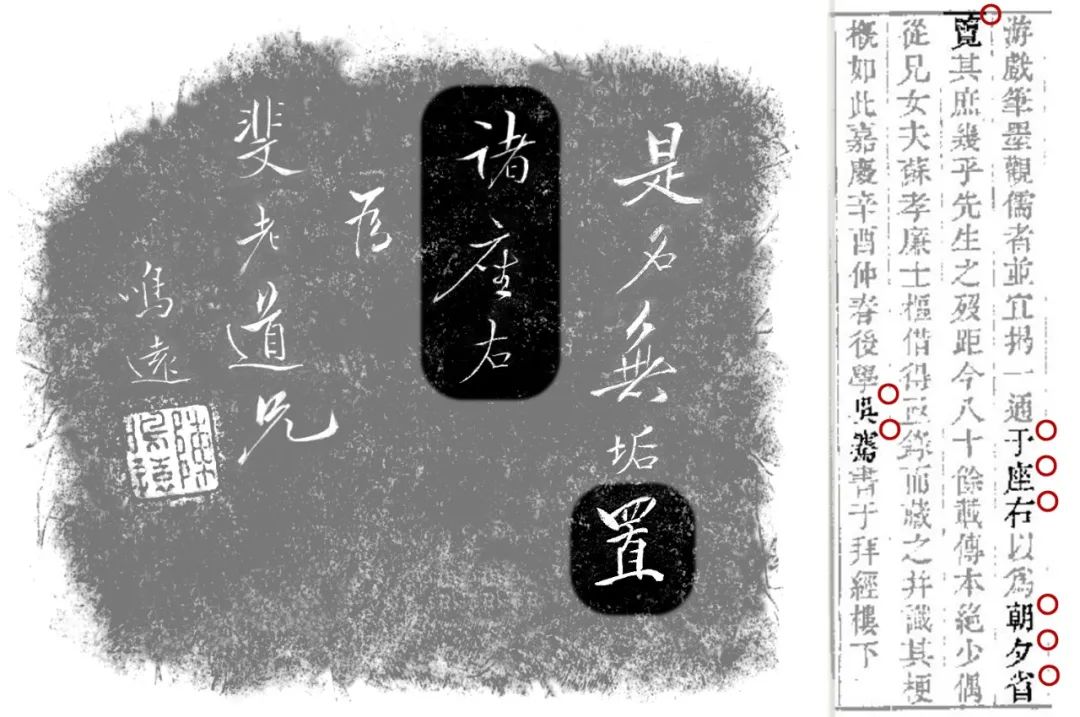 是名無垢置
諸座右
為
斐老道兄
鳴遠
陳鳴遠
游戲筆墨觀儒者並宜揭一通于座右以為朝夕省
覽其庶幾乎先生之歿距今八十餘載傳本絶少偶
從兄女夫蘇孝廉士樞借得亟錄而藏之并識其梗
概如此嘉慶辛酉仲春後學吳騫書于拜經樓下